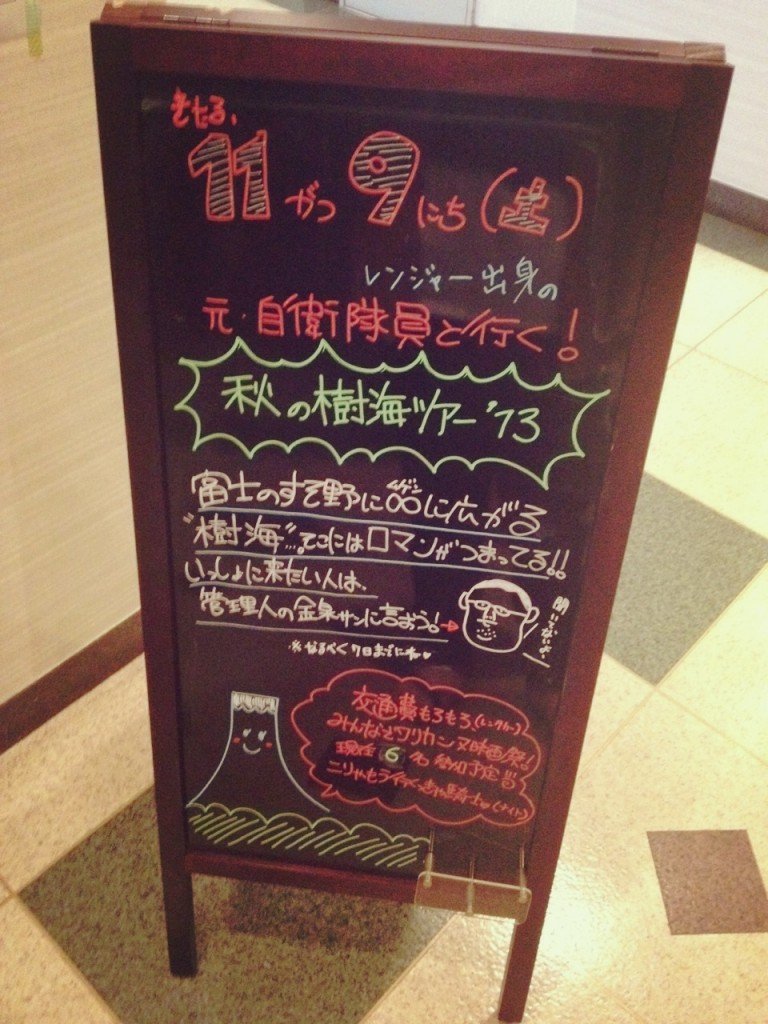 きたる、
11がつ9にち(土)
レンジャー出身の
元・自衛隊員と行く!
秋の樹海ツアー'13
富士のすそ野に∞に広がる
ムゲン
"樹海"...そこにはロマンがつまってる!!
いっしょに来たい人は、
管理人の金泉サンに言おう。→
聞いてないよ〜
※なるべく7日までにネ
交通費もろもろ、(レンタカー)
みんなでワリカン
現在6名参加予定!!!